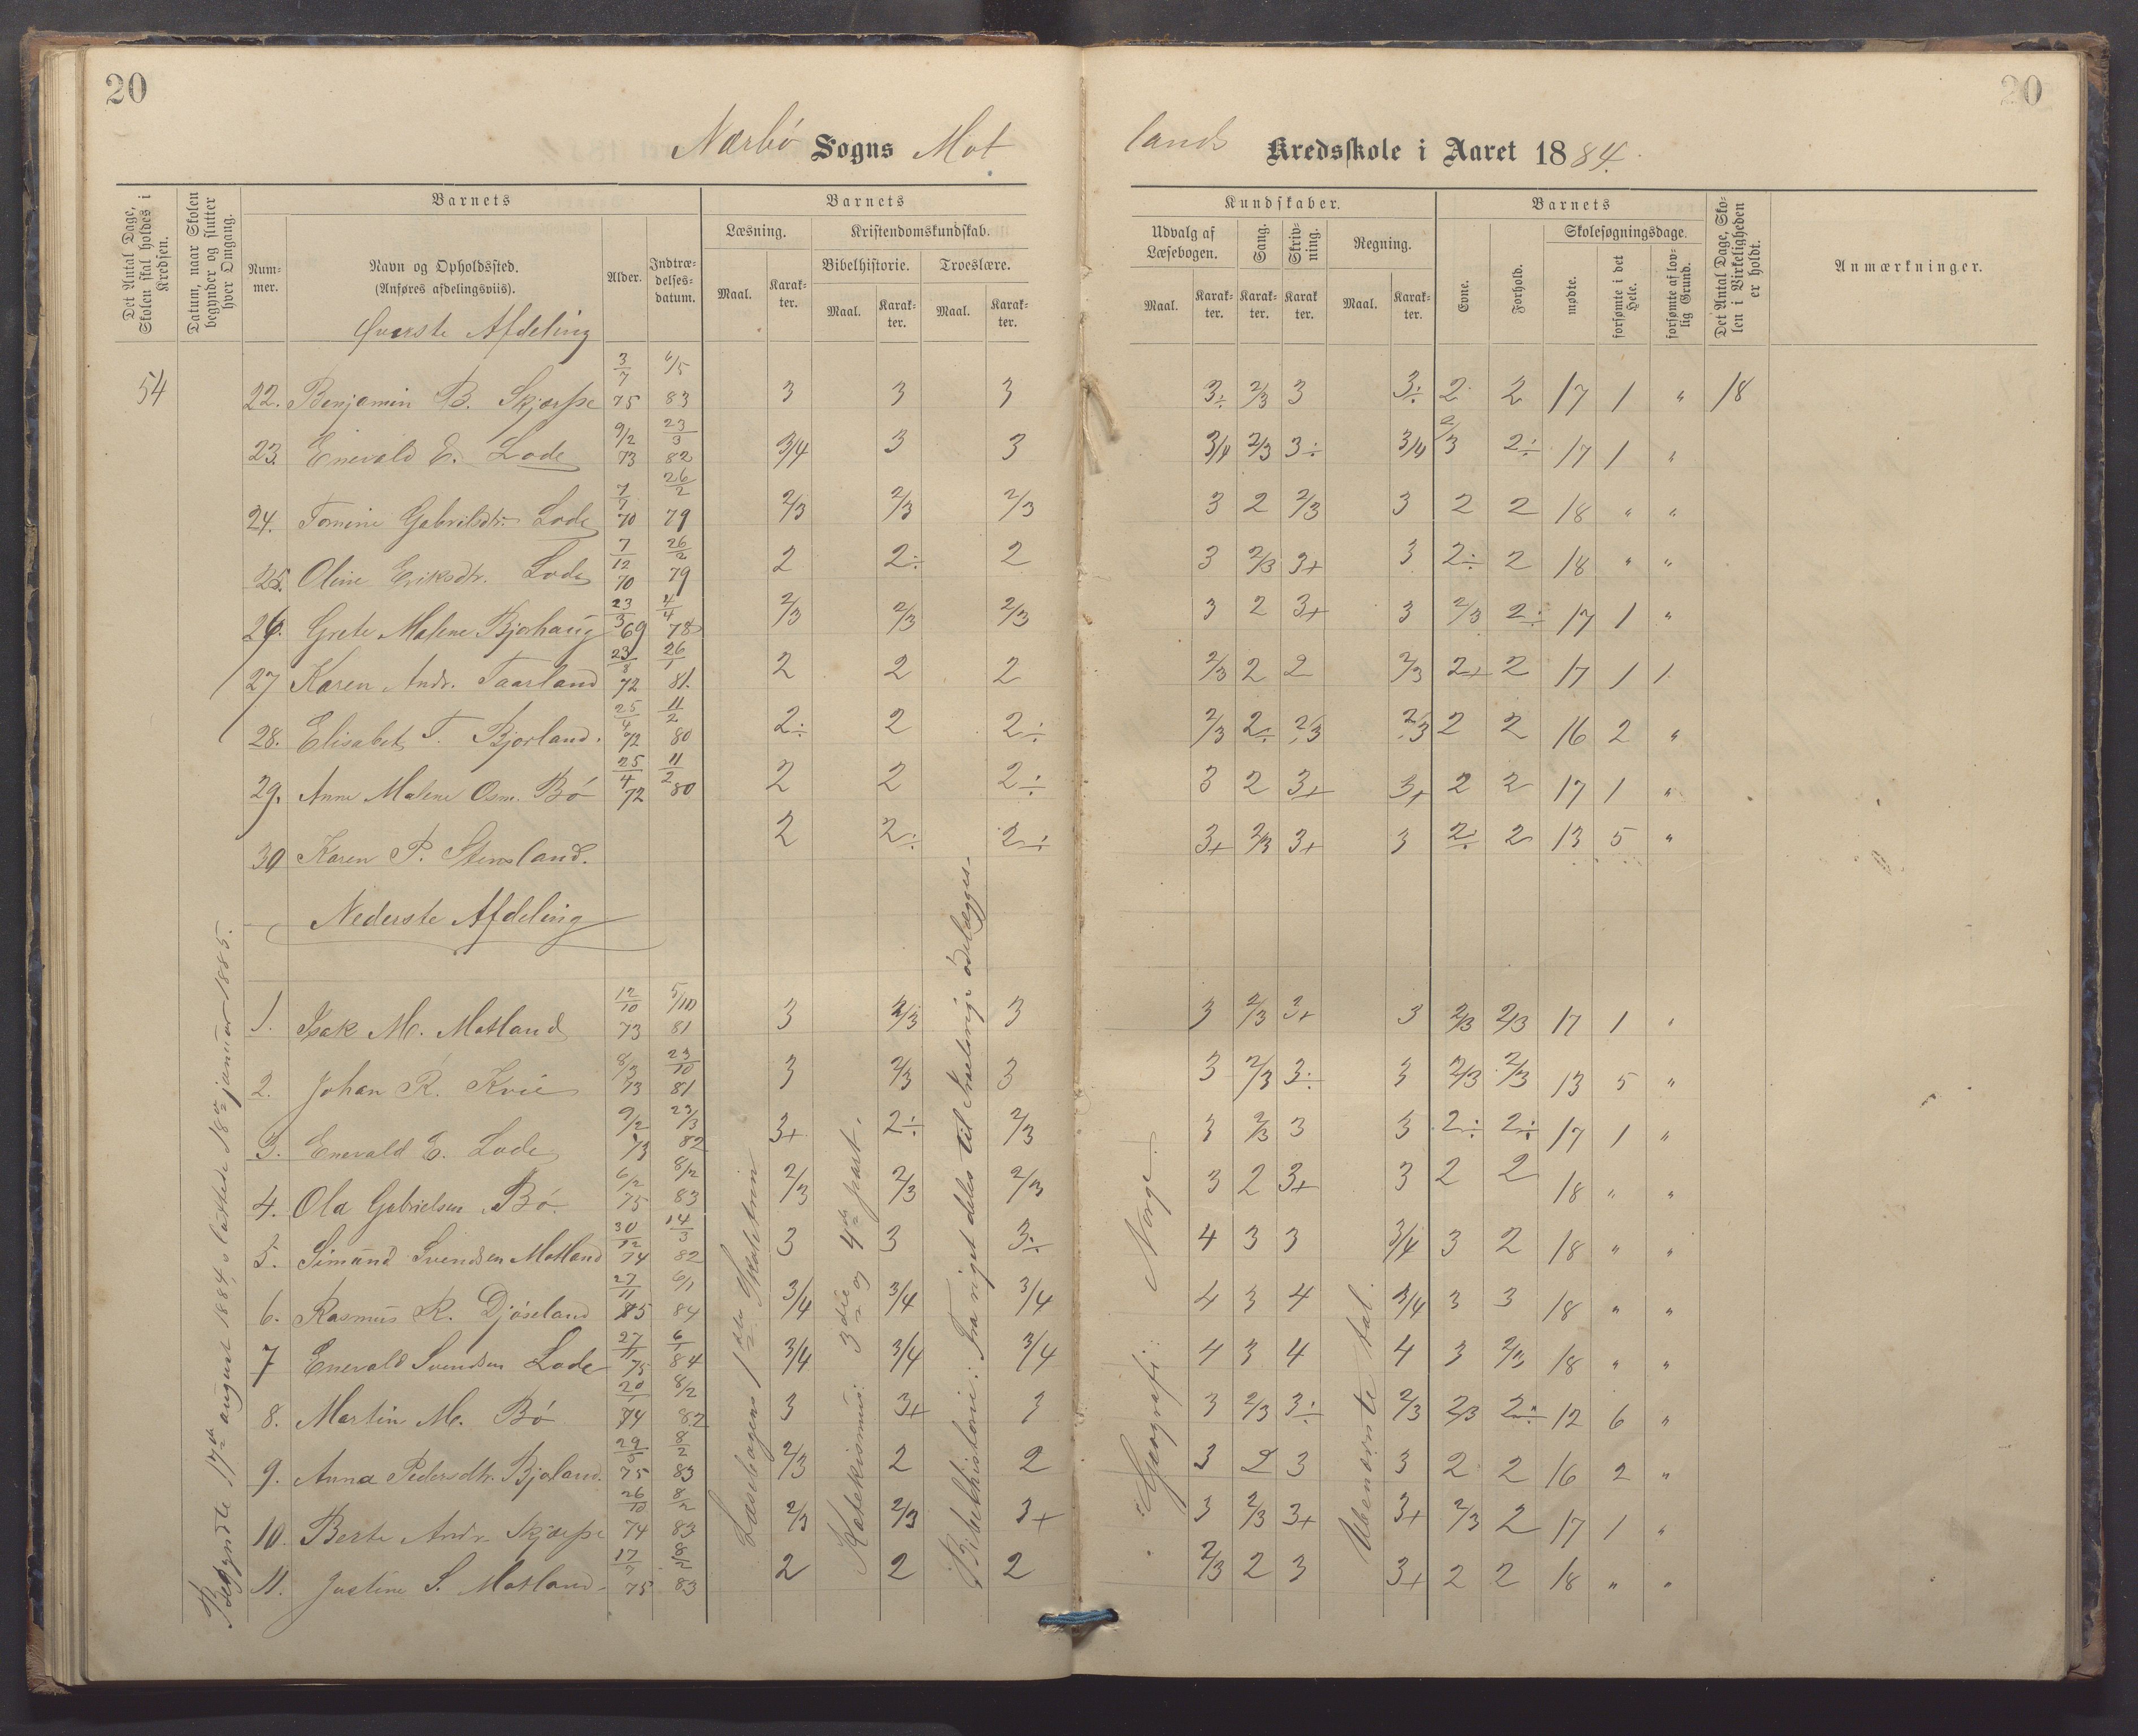 20
20
Nærbö Sogns Mot
lands Kredsskole i Aaret 1884.
Det Antal Dage, Skolen skal holdes i Kredsen.
Datum, naar Skolen begynder og slutter hver Omgang.
Barnets
Nummer.
Navn og Opholdssted.
(Anføres afdelingsviis).
Alder.
Indtrædelsesdatum.
Barnets
Læsning.
Maal.
Karakter.
Kristendomskundskab.
Bibelhistorie.
Maal.
Karakter.
Troeslære.
Maal.
Karakter.
Kundskaber.
Udvalg af Læsebogen.
Maal.
Karakter.
Sang.
Karakter.
Skrivning.
Karakter.
Regning.
Maal.
Karakter.
Barnets
Evne.
Forhold.
Skolesøgningsdage.
mødte.
forsømte i det Hele.
forsømte af lovlig Grund.
Det Antal Dage, Skolen i Virkeligheden er holdt.
Anmærkninger.
Øverste Afdeling
54 22. Benjamin B. Skjærpe 3/7 75 6/5 83 3 3 3 3÷ 2/3 3 3÷ 2 2 17 1 " 18
23. Enevald E. Lode 9/2 73 23/3 82 3/4 3 3 3/4 2/3 3÷ 3/4 2/3 2÷ 17 1 "
24. Tomine Gabrilsdtr. Lode 7/7 70 26/2 79 2/3 2/3 2/3 3 2 2/3 3 2 2 18 " "
25. Oline Eriksdtr. Lode 7/12 70 26/2 79 2 2÷ 2 3 2/3 3+ 3 2÷ 2 18 " "
26. Grete Malene Bjorhaug 23/3 69 4/4 78 2/3 2/3 2/3 3 2 3+ 3 2/3 2÷ 17 1 "
27 Karen Andr. Taarland 23/8 72 26/1 81. 2 2 2 2/3 2 2 2/3 2+ 2 17 1 1
28. Elisabet T. Bjorland. 25/4 72 11/2 80 2÷ 2 2÷ 2/3 2÷ 2/3 2/3 2 2 16 2 "
29. Anne Malene Osm. Bö 25/4 72 11/2 80 2 2 2÷ 3 2 3+ 3+ 2 2 17 1 "
30 Karen P. Stensland. 2 2÷ 2÷ 3+ 2/3 3+ 3 2÷ 2 13 5 "
Nederste Afdeling
1. Isak M. Motland 12/10 73 5/10 81 3 2/3 3 3 2/3 3+ 3 2/3 2/3 17 1 "
2. Johan R. Kvie 8/3 73 23/10 81 3 2/3 3 3 2/3 3÷ 3 2/3 2/3 13 5 "
3. Enevald E. Lode 9/2 73 23/3 82 3+ 2÷ 2/3 3 2/3 3 3 2÷ 2÷ 17 1 "
4. Ola Gabrielsen Bö. 6/2 75 8/2 83 2/3 2/3 2/3 3 2 3+ 3 2 2 18 " "
5. Simund Svendsen Motland 30/12 74 14/3 82 3 3 3÷ 4 3 3 3/4 3 2 18 " "
6. Rasmus R. Djöseland 27/11 75 6/1 84 3/4 3/4 3/4 4 3 4 3/4 3 3 18 " "
7 Enevald Svendsen Lode 27/11 75 6/1 84 3/4 3/4 3/4 4 3 4 4 3 2/3 18 " "
8. Martin M. Bö 20/1 74 8/2 82 3 3+ 3 3 2/3 3÷ 2/3 2/3 2÷ 12 6 "
9. Anna Pedersdtr. Bjoland. 29/9 75 8/2 83 2/3 2 2 3 2 3 3 2 2 16 2 "
10. Berte Andr. Skjærpe 26/10 74 8/2 83 2/3 2/3 3+ 3 2/3 3+ 3+ 2/3 2 17 1 "
11. Justine S. Motland 17/7 75 8/2 83 2 2 2 2/3 2 3 3+ 2 2 18 " "
Begyndte 17de august 1884, sluttede 18de januar 1885.
Læsebogens 1ste Skoletrin
Katekismus: 3die og 4de part.
Bibelhistorie: Fra riget deles til Israelsrige ödelægges.
Geografi: Norge.
Ubenævnte tal.